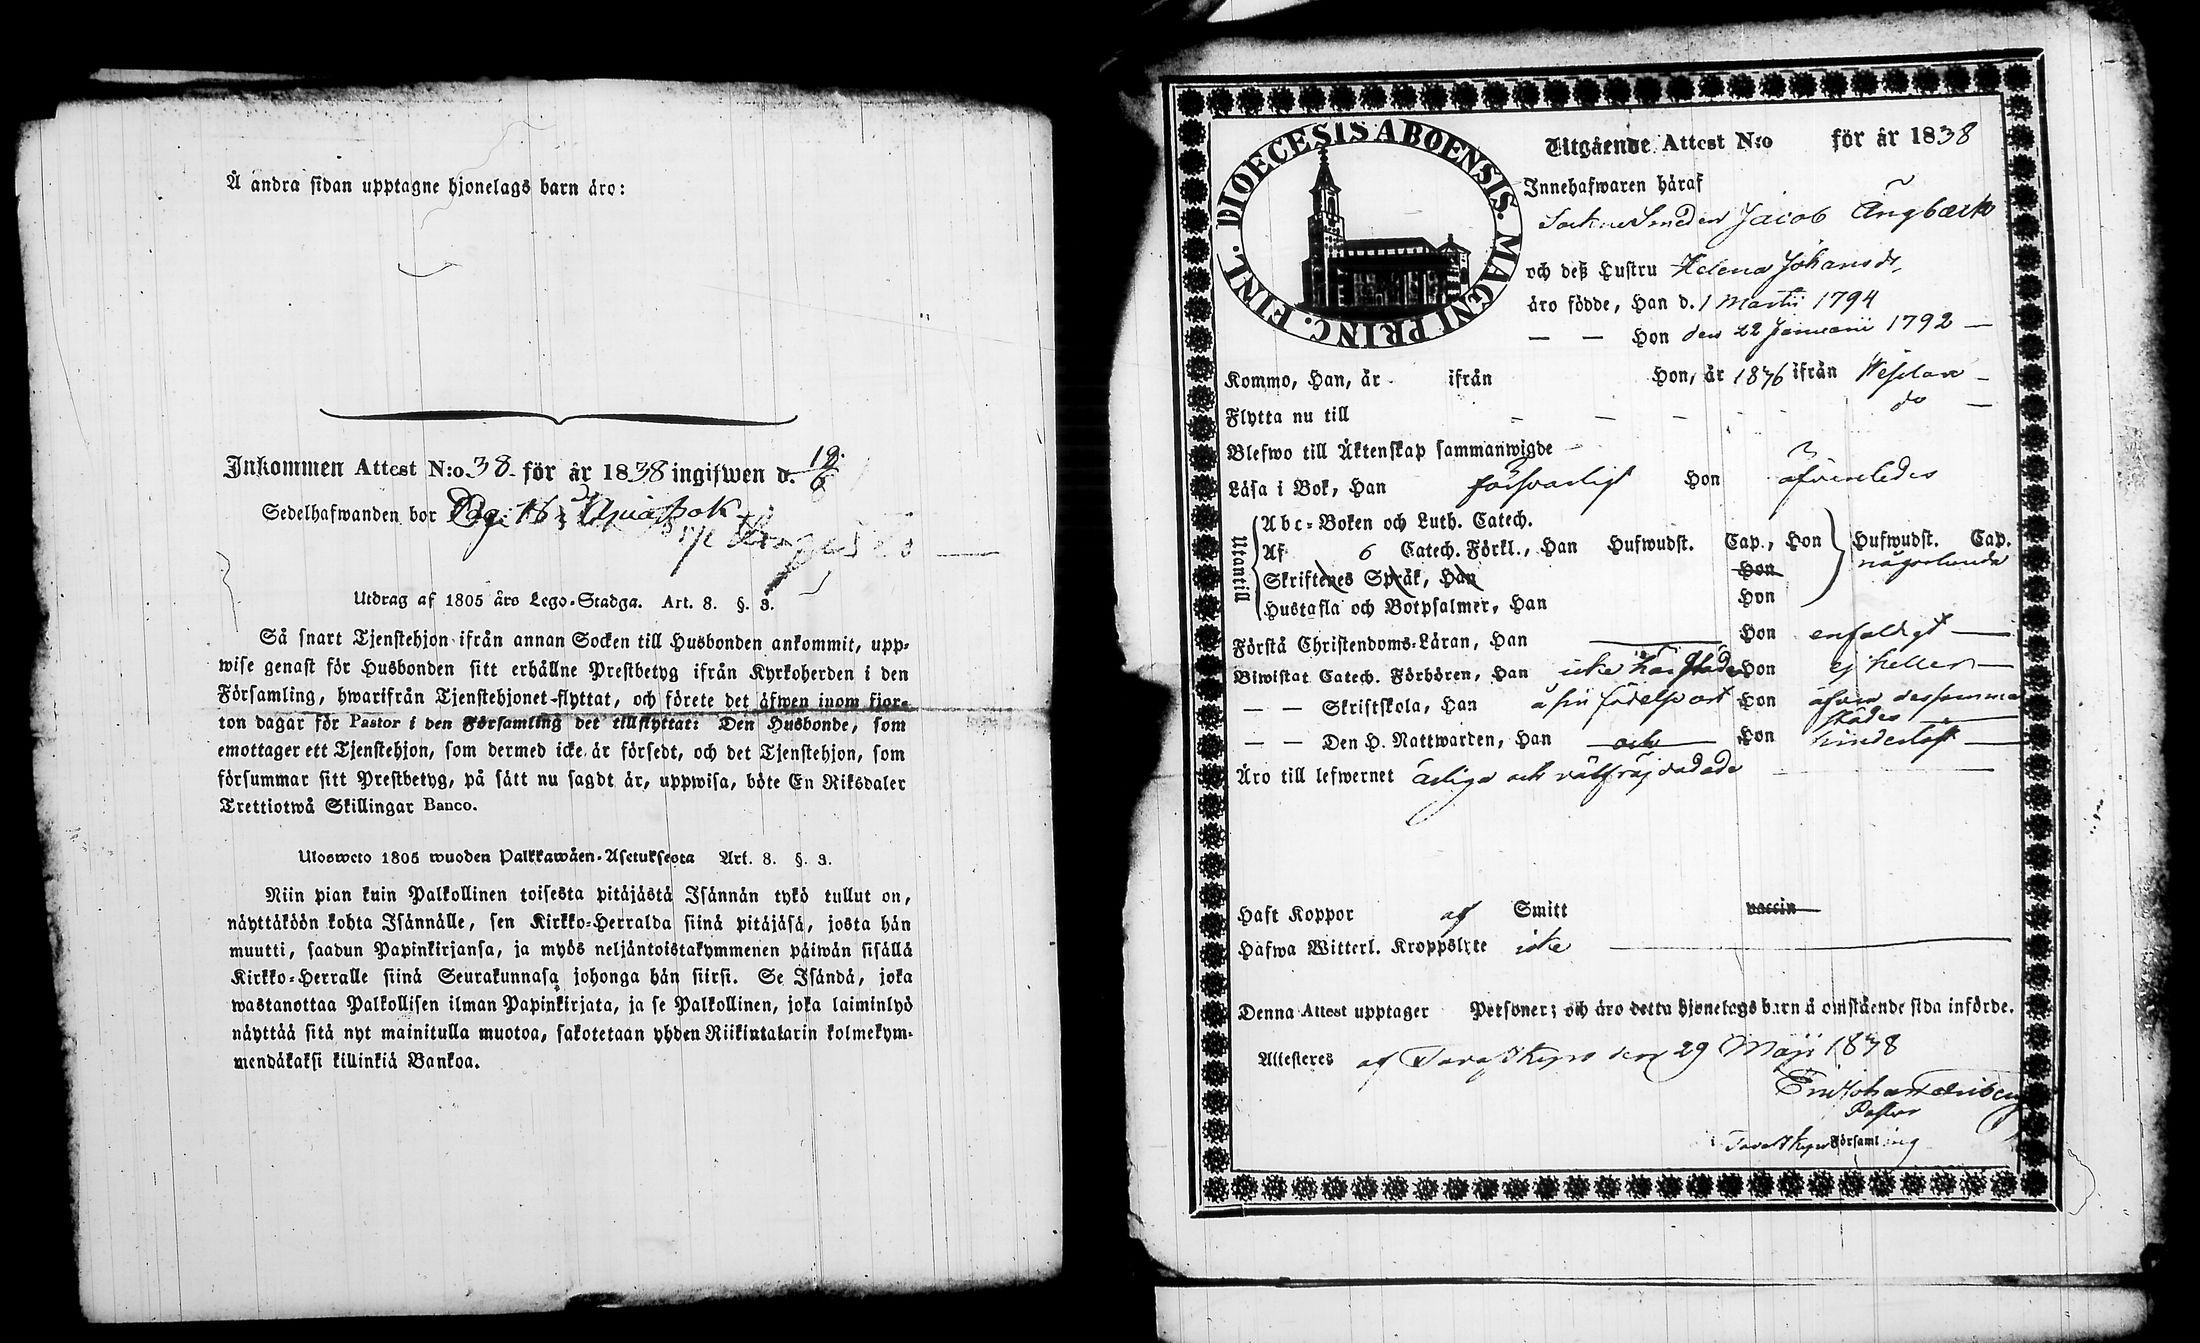 Å andra sidan upptagne hjonelags barn äro:
Inkommen Attest N:o 38. för år 1838 ingifwen d. 12/6
Sedelhafwanden bor Pag: 16
Utdrag af 1805 års Lego-Stadga. Art. 8. §. 3.
Så snart Tjenstehjon ifrån annan Socken till Husbonden ankommit, upp-
wise genast för Husbonden sitt erhållne Prestbetyg ifrån Kyrkoherden i den
Församling, hwarifrån Tjenstehjonet flyttat, och förete det äfwen inom fjor-
ton dagar för Pastor i den Församling det tillflyttat: Den Husbonde, som
emottager ett Tjenstehjon, som dermed icke är försedt, och det Tjenstehjon, som
försummar sitt Prestbetyg, på sätt nu sagdt är, uppwisa, böte En Riksdaler
Trettiotwå Skillingar Banco.
Ulosweto 1805 wuoden Palkkawäen-Asetuksesta Art. 8. §. 3.
Niin pian kuin Palkollinen toisesta pitäjästä Isännän tykö tullut on,
näyttäköön kohta Isännälle, sen Kirkko-Herralda siinä pitäjäsä, josta hän
muutti, saadun Papinkirjansa, ja myös neljäntoistakymmenen päiwän sisällä
Kirkko-Herralle siinä Seurakunnasa johonga hän siirsi. Se Isändä, joka
wastanottaa Palkollisen ilman Papinkirjata, ja se Palkollinen, joka laiminlyö
näyttää sitä nyt mainitulla muotoa, sakotetaan yhden Riikintalarin kolmekym-
mendäkaksi killinkiä Bankoa.
FINL. DIOECESIS ABOENSIS. MAGNI PRINC.
Utgående Attest N:o för år 1838
Innehafwaren häraf
Sockne Smeden Jacob Ängbæck
och deß Hustru Helena Johansdr,
äro födde, Han d. 1 Martii 1794
— — Hon den 22 Januarii 1792 —
Kommo, Han, år ifrån Hon, år 1836 ifrån
Flytta nu till do —
Blefwo till Äktenskap sammanwigde
Läsa i Bok, Han försvarligt Hon äfvenledes
Utantill
Abc-Boken och Luth. Catech.
Af 6 Catech. Förkl., Han Hufwudst. Cap., Hon Hufwudst. Cap.
Skriftenes Språk, Han Hon någorlunda
Hustafla och Botpsalmer, Han Hon
Förstå Christendoms-Läran, Han Hon enfaldigt —
Biwistat Catech. Förhören, Han icke här städes Hon ej heller —
— — Skriftskola, Han å sin födelseort Hon äfven dessamma
städes
— — Den H. Nattwarden, Han och Hon hinderlöst —
Äro till lefwernet ärliga och välfräjdade
Haft Koppor af Smitt vaccin
Hafwa Witterl. Kroppslyte icke
Denna Attest upptager Personer; och äro detta hjonelags barn å omstående sida införde.
Attesteres af Tavastkyro den 29 Maji 1838
Pastor
i Tavastkyro Församling